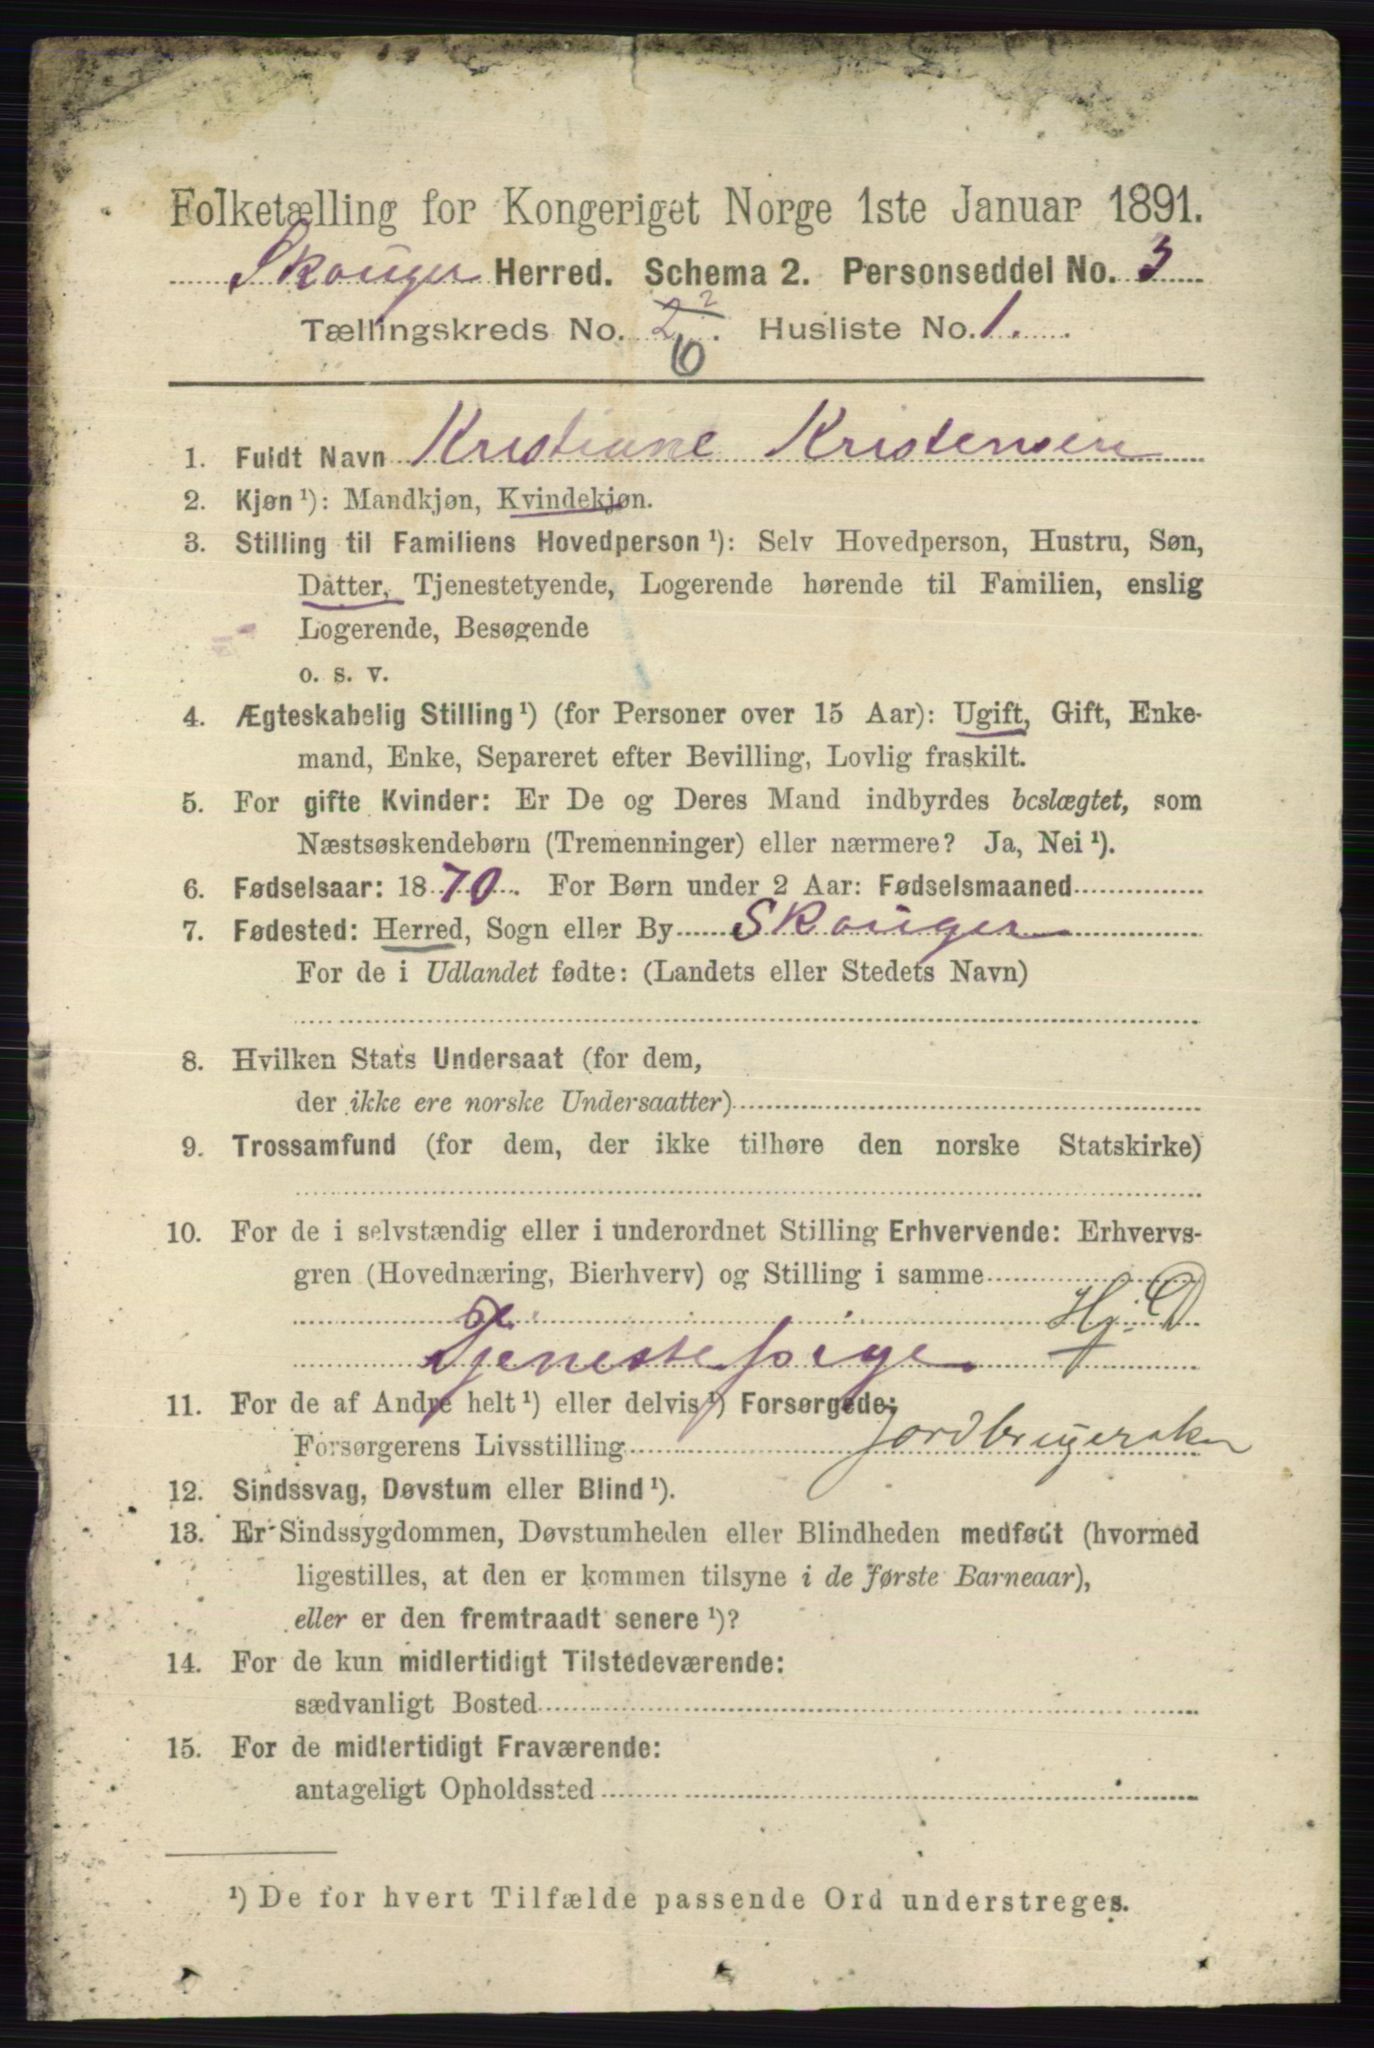 Folketælling for Kongeriget Norge 1ste Januar 1891.
Skouger Herred. Schema 2. Personseddel No. 3
Tællingskreds No. 2 2. Husliste No. 1.
6
1. Fuldt Navn Kristiane Kristensen
2. Kjøn ¹): Mandkjøn, Kvindekjøn.
3. Stilling til Familiens Hovedperson ¹): Selv Hovedperson, Hustru, Søn,
Datter, Tjenestetyende, Logerende hørende til Familien, enslig
Logerende, Besøgende
o. s. v.
4. Ægteskabelig Stilling ¹) (for Personer over 15 Aar): Ugift, Gift, Enke-
mand, Enke, Separeret efter Bevilling, Lovlig fraskilt.
5. For gifte Kvinder: Er De og Deres Mand indbyrdes beslægtet, som
Næstsøskendebørn (Tremenninger) eller nærmere? Ja, Nei ¹).
6. Fødselsaar: 1870. For Børn under 2 Aar: Fødselsmaaned
7. Fødested: Herred, Sogn eller By Skouger
For de i Udlandet fødte: (Landets eller Stedets Navn)
8. Hvilken Stats Undersaat (for dem,
der ikke ere norske Undersaatter)
9. Trossamfund (for dem, der ikke tilhøre den norske Statskirke)
10. For de i selvstændig eller i underordnet Stilling Erhvervende: Erhvervs-
gren (Hovednæring, Bierhverv) og Stilling i samme
Hj: D
Tjenestepige
11. For de af Andre helt ¹) eller delvis ¹) Forsørgede:
Forsørgerens Livsstilling Jordbrugerske
12. Sindssvag, Døvstum eller Blind ¹).
13. Er Sindssygdommen, Døvstumheden eller Blindheden medfødt (hvormed
ligestilles, at den er kommen tilsyne i de første Barneaar),
eller er den fremtraadt senere ¹)?
14. For de kun midlertidigt Tilstedeværende:
sædvanligt Bosted
15. For de midlertidigt Fraværende:
antageligt Opholdssted
¹) De for hvert Tilfælde passende Ord understreges.